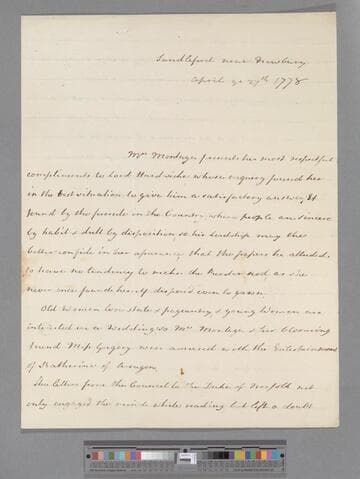 Sandleford near Newbury
April ye 27th 1778
Mrs Montagu presents her most respectful
compliments to Lord Hardwicke whose enquiry found her
in the best situation to give him a satisfactory answer, It
found by the fireside in the Country, where people are sincere
by habit & dull by disposition, so his Lordship may the
better confide in her assurance that the papers he alluded
to have no tendency to make the Reader nod as she
never once found herself disposed even to yawn.
Old Women love state & pageantry, & young Women are
interested in a Wedding, so Mrs Montagu & her blooming
friend Miss Gregory were amused with the Entertainment
of Katherine of Arragon.
The letter from the Council to the Duke of Norfolk not
only engaged the mind while reading but left a doubt